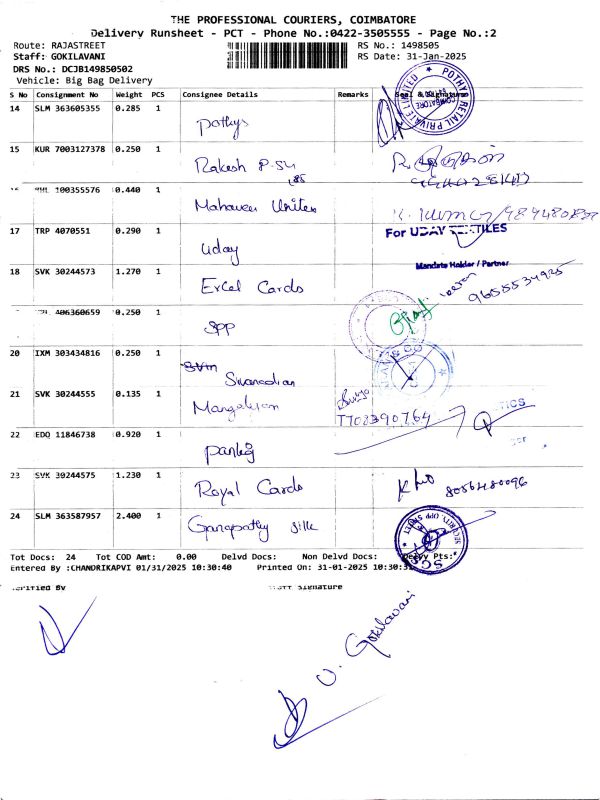 THE PROFESSIONAL COURIERS, COIMBATORE
Delivery Runsheet - PCT - Phone No.:0422-3505555 - Page No.:2
Route: RAJASTREET RS No.: 1498505
Staff: GOKILAVANI RS Date: 31-Jan-2025
DRS No.: DCJB149850502
Vehicle: Big Bag Delivery
S No Consignment No Weight PCS Consignee Details Remarks Seal & Signature
14 SLM 363605355 0.285 1 Pothys
POTHYS RETAIL PRIVATE LIMITED COIMBATORE
15 KUR 7003127378 0.250 1 Rakesh P.S4
100355576 0.440 1 Mahaveer Unites
17 TRP 4070551 0.290 1 Uday
For UDAY TEXTILES
Mandate Holder / Partner
18 SVK 30244573 1.270 1 Excel Cards
9655534925
406360659 0.250 1 SPP
20 IXM 303434816 0.250 1 Sivanadian
21 SVK 30244555 0.135 1 Mangalyam
7708390764
22 EDQ 11846738 0.920 1
23 SVK 30244575 1.230 1 Royal Cards
8056480096
24 SLM 363587957 2.400 1 Ganapathy Silk
Tot Docs: 24 Tot COD Amt: 0.00 Delvd Docs: Non Delvd Docs: Heavy Pts:
Entered By :CHANDRIKAPVI 01/31/2025 10:30:40 Printed On: 31-01-2025 10:30:
Verified By Staff Signature
V. Gokilavani